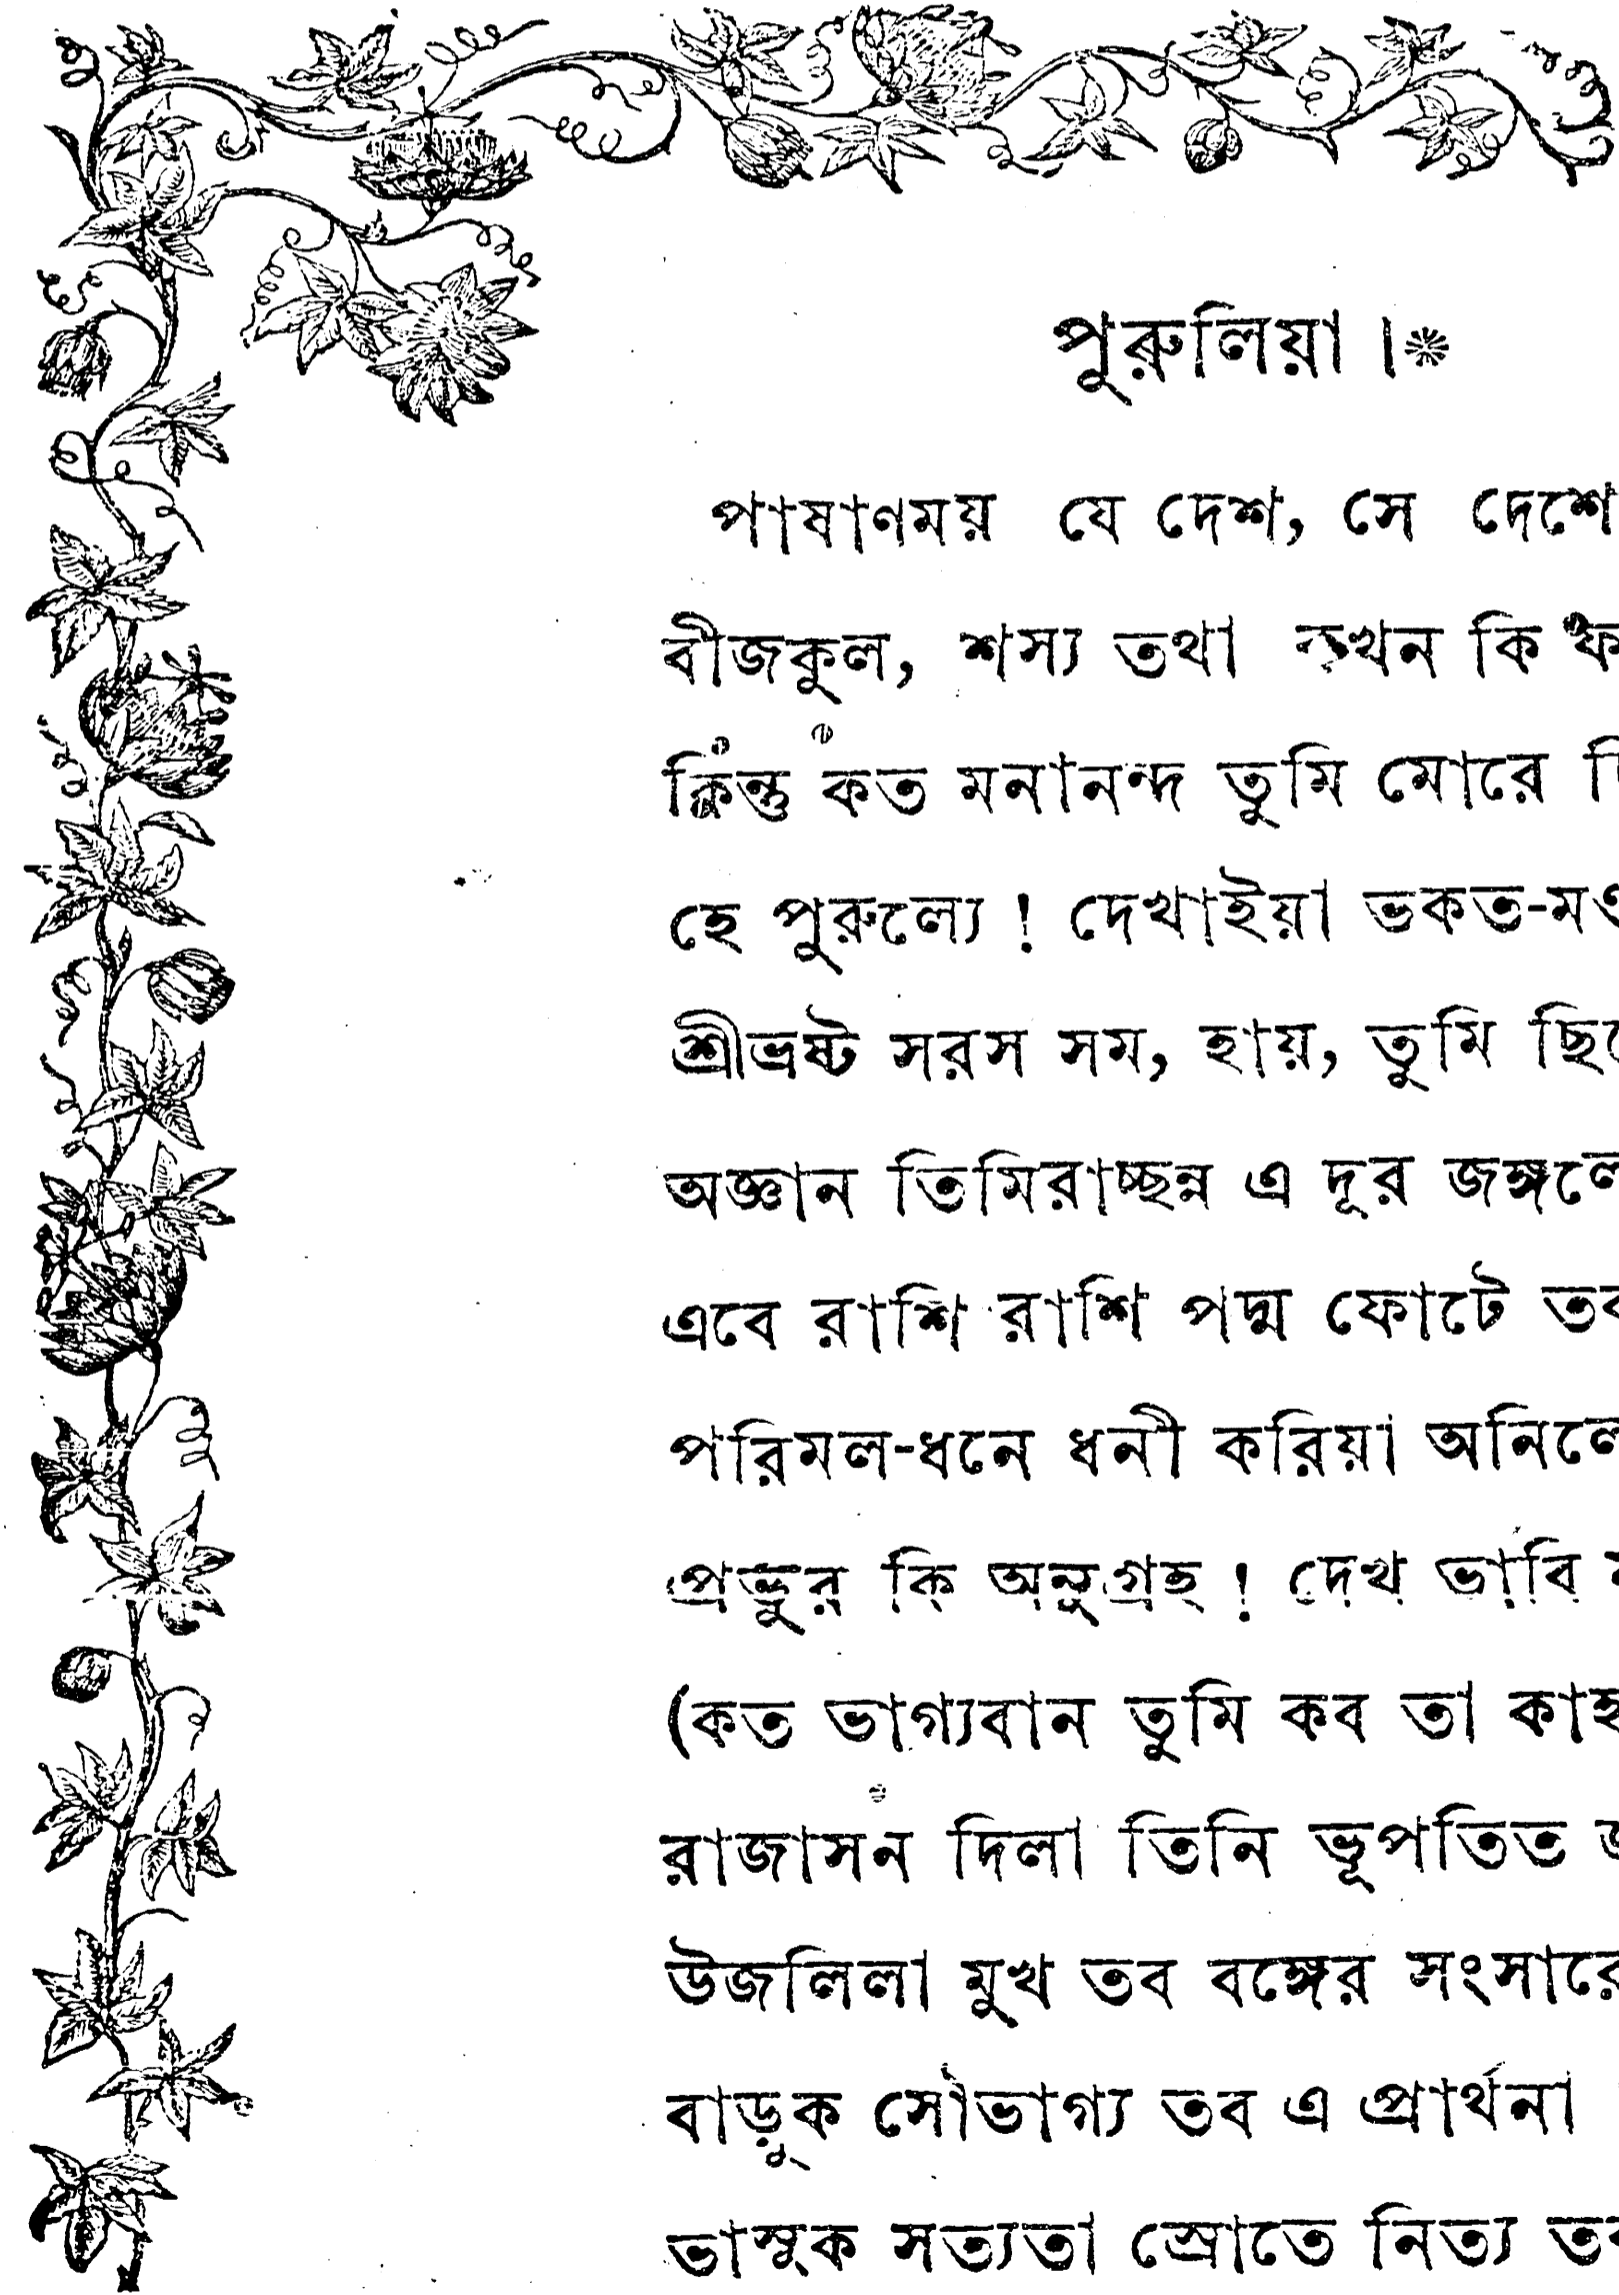 পুরুলিয়া।*
পাষাণময় যে দেশ, সে দেশে
বীজকুল, শস্য তথা কখন কি
কিন্তু কত মনানন্দ তুমি মোরে
হে পুরুল্যে! দেখাইয়া ভকত-
শ্রীভ্রষ্ট সরস সম, হায়, তুমি
অজ্ঞান তিমিরাচ্ছন্ন এ দূর জঙ্গলে
এবে রাশি রাশি পদ্ম ফোটে
পরিমল-ধনে ধনী করিয়া অনিলে
প্রভুর কি অনুগ্রহ! দেখ ভাবি
(কত ভাগ্যবান তুমি কব তা
রাজাসন দিলা তিনি ভূপতিত
উজলিলা মুখ তব বঙ্গের সংসারে
বাড়ুক সৌভাগ্য তব এ প্রার্থনা
ভাসুক সত্যতা স্রোতে নিত্য